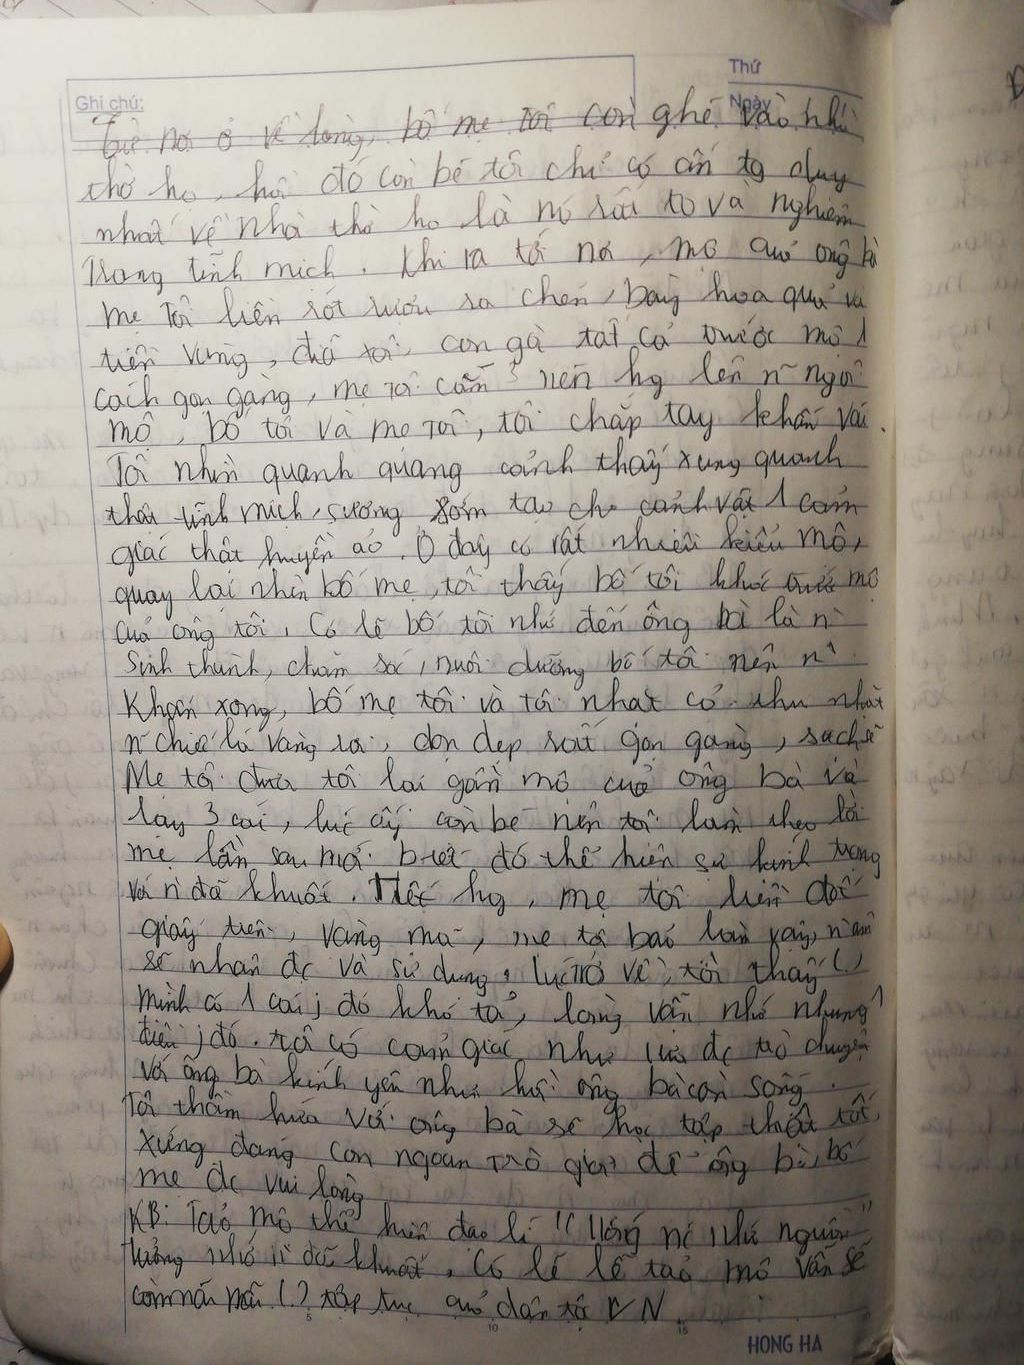 Thứ
Ghi chú:
Ngày
Từ nơi ở về làng, bố mẹ tôi còn ghé vào nhà
thờ họ, hồi đó còn bé tôi chỉ có ấn tg duy
nhất về nhà thờ họ là nó rất to và nghiêm
trang tĩnh mịch. Khi ra tới nơi, mộ của ông bà
mẹ tôi liền rót rượu ra chén, bày hoa quả và
tiền vàng, đĩa xôi, con gà tất cả trước mộ 1
cách gọn gàng, mẹ tôi cắm 3 nén hg lên n~ ngôi
mộ, bố tôi và mẹ tôi, tôi chắp tay khấn vái.
Tôi nhìn quanh quang cảnh thấy xung quanh
thật tĩnh mịch, sương sớm tạo cho cảnh vật 1 cảm
giác thật huyền ảo. Ở đây có rất nhiều kiểu mộ,
quay lại nhìn bố mẹ, tôi thấy bố tôi khóc trước mộ
của ông tôi. Có lẽ bố tôi nhớ đến ông bà là n`
sinh thành, chăm sóc, nuôi dưỡng bố tôi nên n`
Khấn xong, bố mẹ tôi và tôi nhặt cỏ thu nhặt
n~ chiếc lá vàng rơi, dọn dẹp rất gọn gàng, sạch sẽ
Mẹ tôi đưa tôi lại gần mộ của ông bà và
lạy 3 cái, lúc ấy còn bé nên tôi làm theo lời
mẹ lần sau mới biết đó thể hiện sự kính trọng
với n` đã khuất. Hết hg, mẹ tôi liền đốt
giấy tiền, vàng mã, mẹ tôi bảo làm vậy, n` âm
sẽ nhận đc và sử dụng. Lúc trở về, tôi thấy (.)
mình có 1 cái j đó khó tả, lòng vẫn nhớ nhung 1
điều j đó. tôi có cảm giác như vừa đc trò chuyện
với ông bà kính yêu như hồi ông bà còn sống.
Tôi thầm hứa với ông bà sẽ học tập thật tốt,
xứng đáng con ngoan trò giỏi để ông bà, bố
mẹ đc vui lòng
KB: Tảo mộ thể hiện đạo lí "Uống nc nhớ nguồn"
tưởng nhớ n` đã khuất. Có lẽ lễ tảo mộ vẫn sẽ
còn mãi mãi (.) tập tục của dân tộc VN.
5 10 15
HONG HA